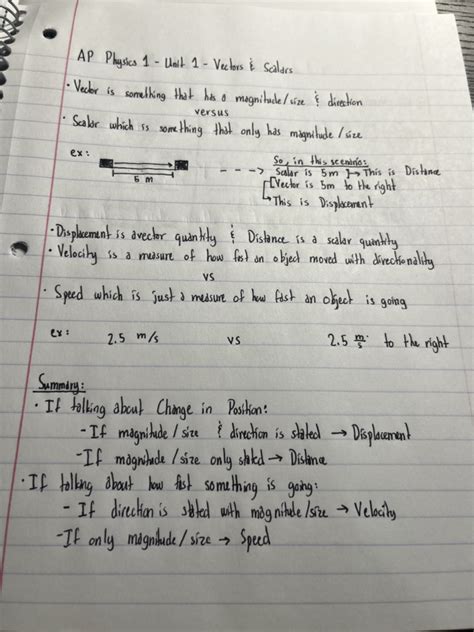 AP Physics 1 - Unit 1 - Vectors & Scalars
• Vector is something that has a magnitude/size & direction
versus
• Scalar which is something that only has magnitude/size
ex:
5 m
So, in this scenario:
Scalar is 5m → This is Distance
Vector is 5m to the right
→ This is Displacement
• Displacement is a vector quantity & Distance is a scalar quantity
• Velocity is a measure of how fast an object moved with directionality
vs
• Speed which is just a measure of how fast an object is going
ex: 2.5 m/s vs 2.5 m/s to the right
Summary:
• If talking about Change in Position:
- If magnitude/size & direction is stated → Displacement
- If magnitude/size only stated → Distance
• If talking about how fast something is going:
- If direction is stated with magnitude/size → Velocity
- If only magnitude/size → Speed